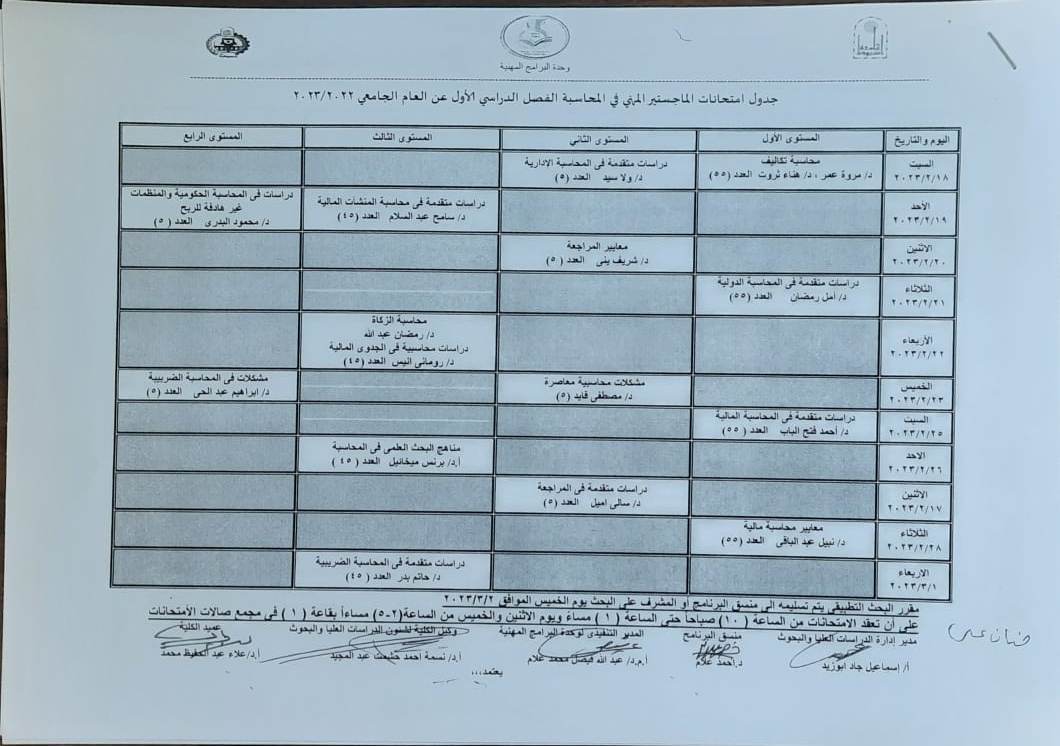 وحدة البرامج المهنية
جدول امتحانات الماجستير المهني في المحاسبة الفصل الدراسي الأول عن العام الجامعي ٢٠٢٣/٢٠٢٢
اليوم والتاريخ المستوى الأول المستوى الثاني المستوى الثالث المستوى الرابع
السبت
٢٠٢٣/٢/١٨
محاسبة تكاليف
د/ مروة عمر ، د/ هناء ثروت العدد (٥٥)
دراسات متقدمة فى المحاسبة الادارية
د/ ولا سيد العدد (٥)
الاحد
٢٠٢٣/٢/١٩
دراسات متقدمة فى محاسبة المنشات المالية
د/ سامح عبد السلام العدد (٤٥)
دراسات فى المحاسبة الحكومية والمنظمات
غير هادفة للربح
د/ محمود البدرى العدد (٥)
الأثنين
٢٠٢٣/٢/٢٠
معايير المراجعة
د/ شريف يني العدد (٥)
الثلاثاء
٢٠٢٣/٢/٢١
دراسات متقدمة فى المحاسبة الدولية
د/ أمل رمضان العدد (٥٥)
الأربعاء
٢٠٢٣/٢/٢٢
محاسبة الزكاة
د/ رمضان عبد الله
دراسات محاسبية فى الجدوى المالية
د/ رومانى انيس العدد (٤٥)
الخميس
٢٠٢٣/٢/٢٣
مشكلات محاسبية معاصرة
د/ مصطفى قايد (٥)
مشكلات فى المحاسبة الضريبية
د/ ابراهيم عبد الحى العدد (٥)
السبت
٢٠٢٣/٢/٢٥
دراسات متقدمة فى المحاسبة المالية
د/ أحمد فتح الباب العدد (٥٥)
الاحد
٢٠٢٣/٢/٢٦
مناهج البحث العلمى فى المحاسبة
أ.د/ برنس ميخائيل العدد (٤٥)
الأثنين
٢٠٢٣/٢/١٧
دراسات متقدمة فى المراجعة
د/ سالى اميل العدد (٥)
الثلاثاء
٢٠٢٣/٢/٢٨
معايير محاسبة مالية
د/ نبيل عبد الباقى العدد (٥٥)
الاربعاء
٢٠٢٣/٣/١
دراسات متقدمة فى المحاسبة الضريبية
د/ حاتم بدر العدد (٤٥)
مقرر البحث التطبيقى يتم تسليمه الى منسق البرنامج أو المشرف على البحث يوم الخميس الموافق ٢٠٢٣/٣/٢
على أن تعقد الامتحانات من الساعة (١٠) صباحاً حتى الساعة (١) مساءً ويوم الأثنين والخميس من الساعة(٢-٥) مساءاً بقاعة (١) فى مجمع صالات الأمتحانات
مدير إدارة الدراسات العليا والبحوث منسق البرنامج المدير التنفيذى لوحدة البرامج المهنية وكيل الكلية لشئون الدراسات العليا والبحوث عميد الكلية
أ/ إسماعيل جاد ابوزيد د.أحمد علام أ.م.د/ عبد الله فيصل محمد علام أ.د/ نسمة أحمد حشمت عبد المجيد أ.د/ علاء عبد الحفيظ محمد
يعتمد،،،